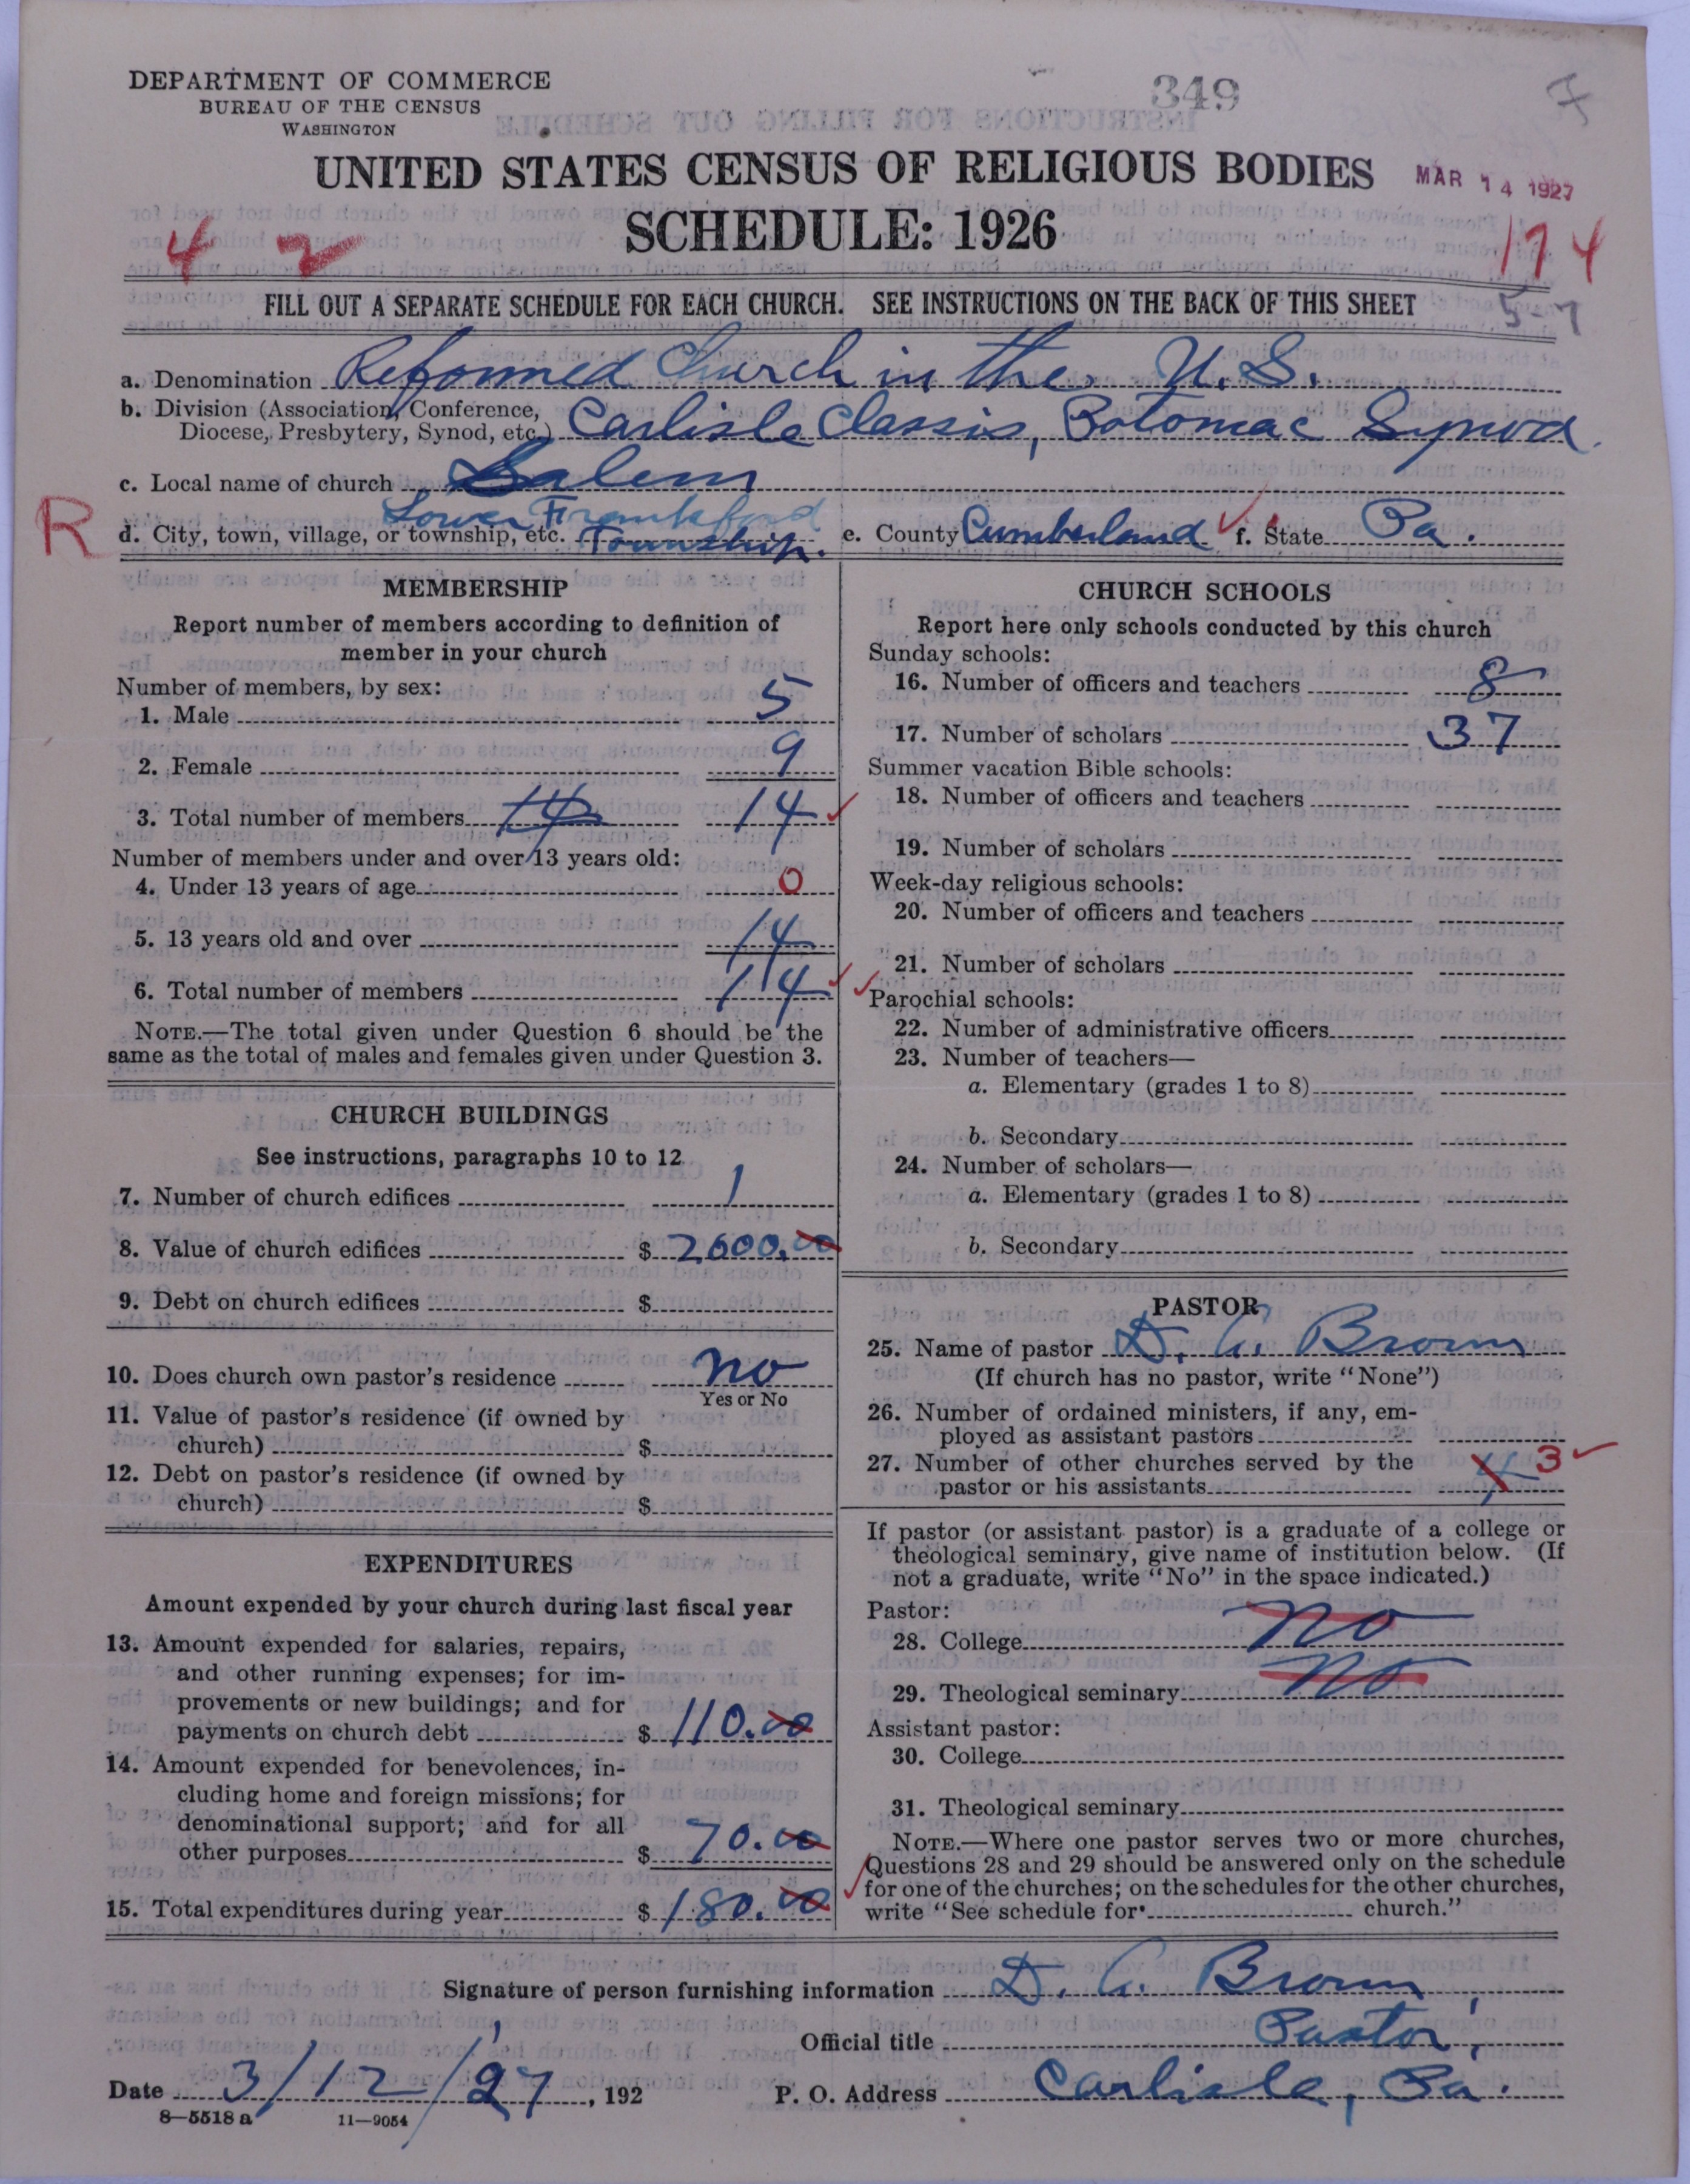 DEPARTMENT OF COMMERCE
BUREAU OF THE CENSUS
WASHINGTON
349
7
UNITED STATES CENSUS OF RELIGIOUS BODIES
MAR 14 1927
SCHEDULE: 1926
4 2
174
FILL OUT A SEPARATE SCHEDULE FOR EACH CHURCH. SEE INSTRUCTIONS ON THE BACK OF THIS SHEET
5-7
a. Denomination Reformed Church in the U.S.
b. Division (Association, Conference, Diocese, Presbytery, Synod, etc.) Carlisle Classis, Potomac Synod.
c. Local name of church Salem
R
d. City, town, village, or township, etc. Lower Frankford Township. e. County Cumberland f. State Pa.
MEMBERSHIP
Report number of members according to definition of
member in your church
Number of members, by sex:
1. Male 5
2. Female 9
3. Total number of members 14 14
Number of members under and over 13 years old:
4. Under 13 years of age 0
5. 13 years old and over 14
6. Total number of members 14
NOTE.—The total given under Question 6 should be the
same as the total of males and females given under Question 3.
CHURCH BUILDINGS
See instructions, paragraphs 10 to 12
7. Number of church edifices 1
8. Value of church edifices $ 2600.00
9. Debt on church edifices $
10. Does church own pastor's residence no
Yes or No
11. Value of pastor's residence (if owned by
church) $
12. Debt on pastor's residence (if owned by
church) $
EXPENDITURES
Amount expended by your church during last fiscal year
13. Amount expended for salaries, repairs,
and other running expenses; for im-
provements or new buildings; and for
payments on church debt $ 110.00
14. Amount expended for benevolences, in-
cluding home and foreign missions; for
denominational support; and for all
other purposes $ 70.00
15. Total expenditures during year $ 180.00
CHURCH SCHOOLS
Report here only schools conducted by this church
Sunday schools:
16. Number of officers and teachers 8
17. Number of scholars 37
Summer vacation Bible schools:
18. Number of officers and teachers
19. Number of scholars
Week-day religious schools:
20. Number of officers and teachers
21. Number of scholars
Parochial schools:
22. Number of administrative officers
23. Number of teachers—
a. Elementary (grades 1 to 8)
b. Secondary
24. Number of scholars—
a. Elementary (grades 1 to 8)
b. Secondary
PASTOR
25. Name of pastor D. A. Brown
(If church has no pastor, write "None")
26. Number of ordained ministers, if any, em-
ployed as assistant pastors
27. Number of other churches served by the
pastor or his assistants 4 3
If pastor (or assistant pastor) is a graduate of a college or
theological seminary, give name of institution below. (If
not a graduate, write "No" in the space indicated.)
Pastor:
28. College no
29. Theological seminary no
Assistant pastor:
30. College
31. Theological seminary
NOTE.—Where one pastor serves two or more churches,
Questions 28 and 29 should be answered only on the schedule
for one of the churches; on the schedules for the other churches,
write "See schedule for church."
Signature of person furnishing information D. A. Brown,
Official title Pastor,
Date 3/12/'27, 192 P. O. Address Carlisle, Pa.
8—5518 a 11—9054